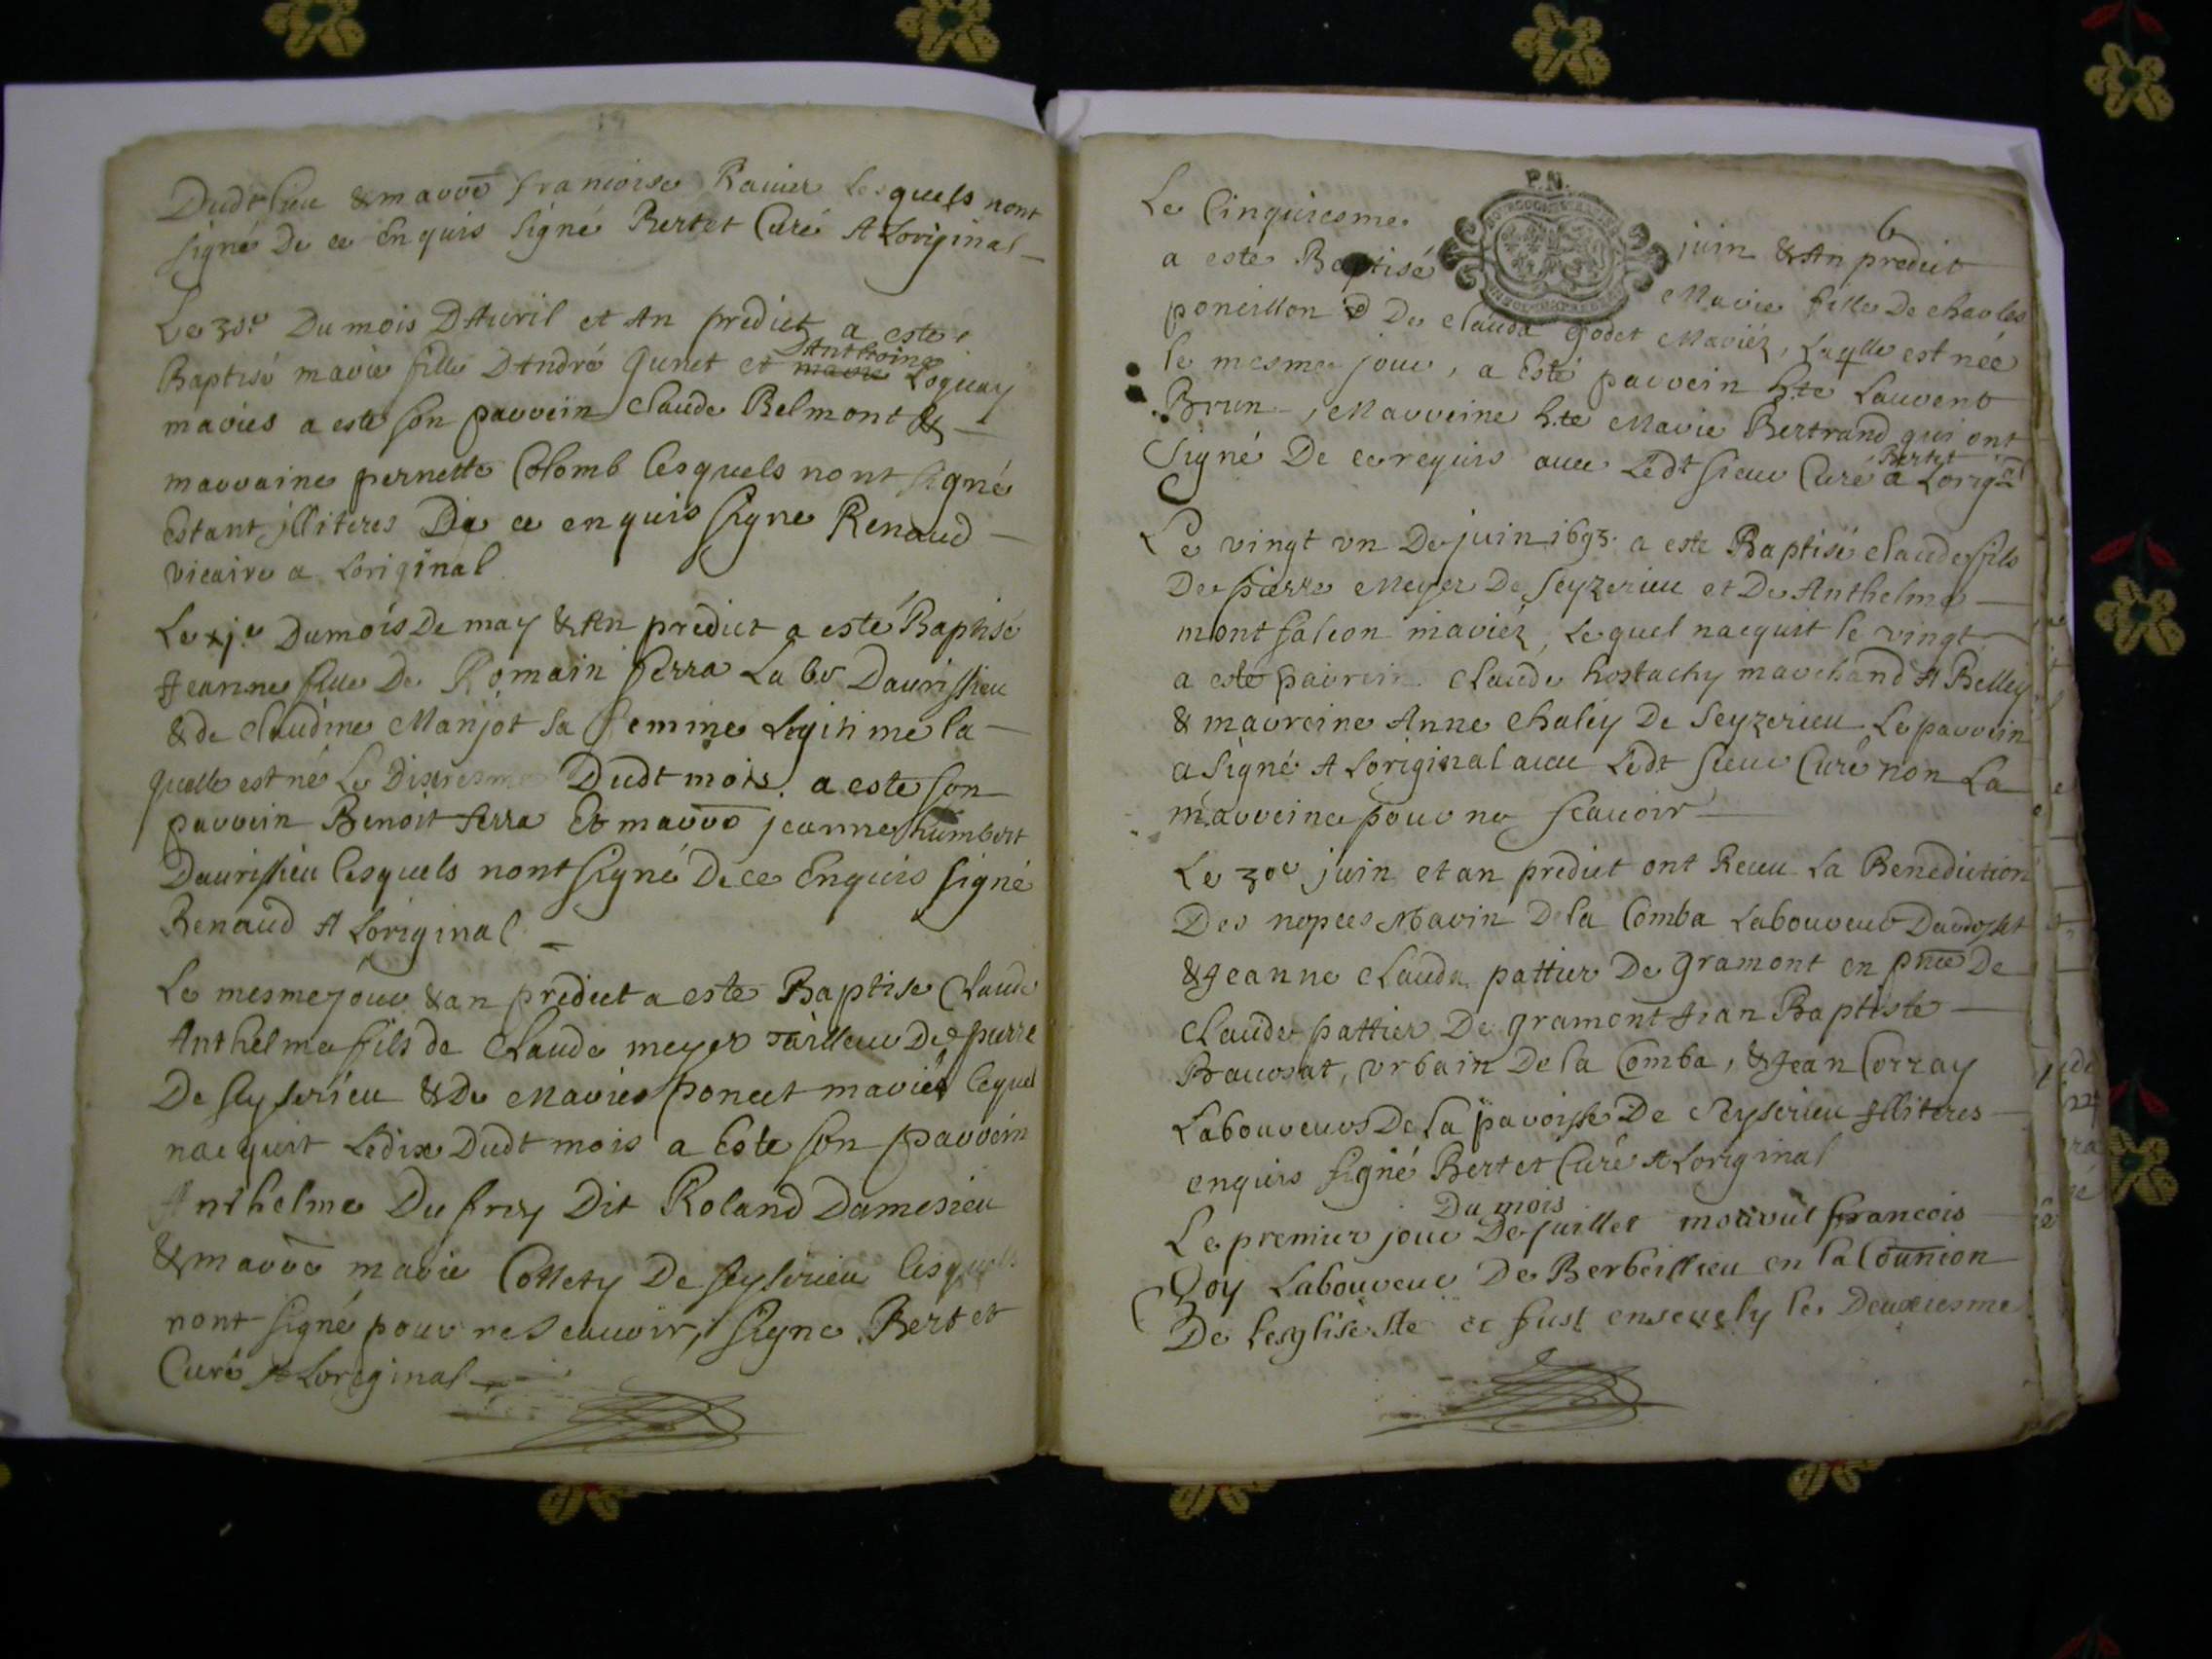 Dudt lieu & marrē francoise Rauier Lesquels nont
signé De ce Enquis signé Bertet Curé A Loriginal
Le 30.e Du mois DAuril et An predict a esté
DAnthoine
Baptisé marie fille DAndré Guret et marie Loquay
mariés a esté son parrein Claude Belmont &
marraine pernette Colomb lesquels nont signé
Estant jlliteres De ce enquis signe Renaud
vicaire a Loriginal
Le xj.e Dumois De may & An predict a esté Baptisé
Jeanne fille De Romain serra Labr Daurissieu
& de Claudine Manjot sa femme legitime la
quelle est né Le Dixiesme Dudt mois, a esté son
parrein Benoit serra Et marrē jeanne humbert
Daurissieu lesquels nont signé De ce Enquis signé
Renaud A Loriginal
Le mesme jour & an predict a esté Baptise Claude
Anthelme fils de Claude meyer Tailleur De pierre
De seyserieu & De Marie poncet mariés lequel
nacquit Ledix Dudt mois a Esté son parrein
Anthelme Du frey Dit Roland Damesieu
& marrē marie Collety De seyserieu lesquels
nont signé pour ne scauoir, signe Bertet
Curé A Loriginal
P.N.
6
Le Cinquiesme juin & An predict
a esté Baptisé Marie fille De charles
poncillon & De clauda Godet Mariéz, Laqlle est née
le mesme jour, a Esté parrein h.te Laurent
Brun, Marreine h.te Marie Bertrand qui ont
Bertet
signé De ce requis auec Ledt sieur Curé a Lorig.al
Le vingt vn De juin 1693. a esté Baptisé claude fils
De pierre Meyer De seyzerieu et De Anthelma
montfalcon mariéz, Lequel nacquit le vingt
a esté parrein Claude hostachy marchand A Belley
& marreine Anne chaley De seyzerieu Le parrein
a signé A Loriginal auec Ledt sieur Curé non La
marreine pour ne scauoir
Le 30e juin et an predict ont Receu La Benediction
Des nopces Marin De la Comba Laboureur
& Jeanne Clauda pattier De gramont en pnce De
Claude pattier De gramont Jian Baptiste
vrbain De la Comba, & Jean Corray
Laboureurs De la paroisse De Ceyserieu Jlliteres
enquis signé Bertet Curé A Loriginal
Du mois
Le premier jour De juillet mourut francois
Goy Laboureur De Berbeillieu en la Coūnion
De Lesglise ste et fust enseuely le Deuxiesme